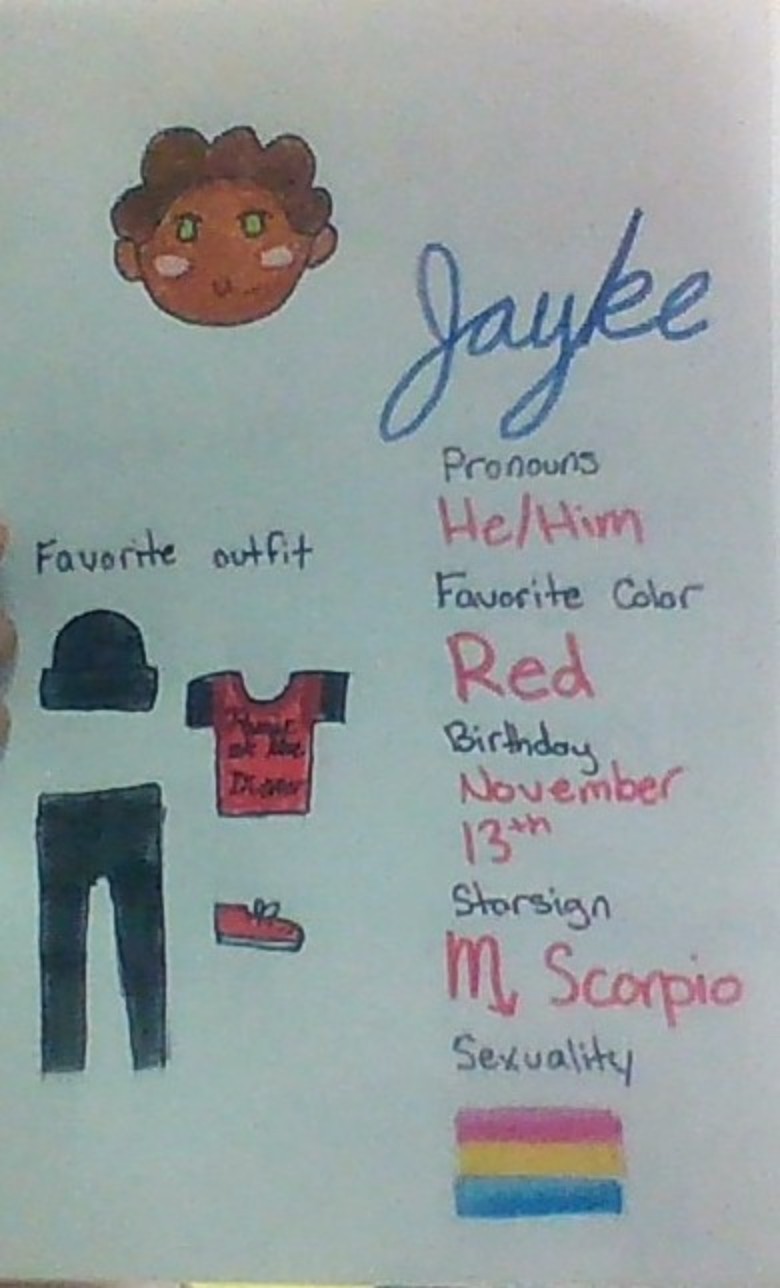 Jayke
Pronouns
He/Him
Favorite outfit
Favorite Color
Red
Birthday
November
13th
Starsign
♏ Scorpio
Sexuality